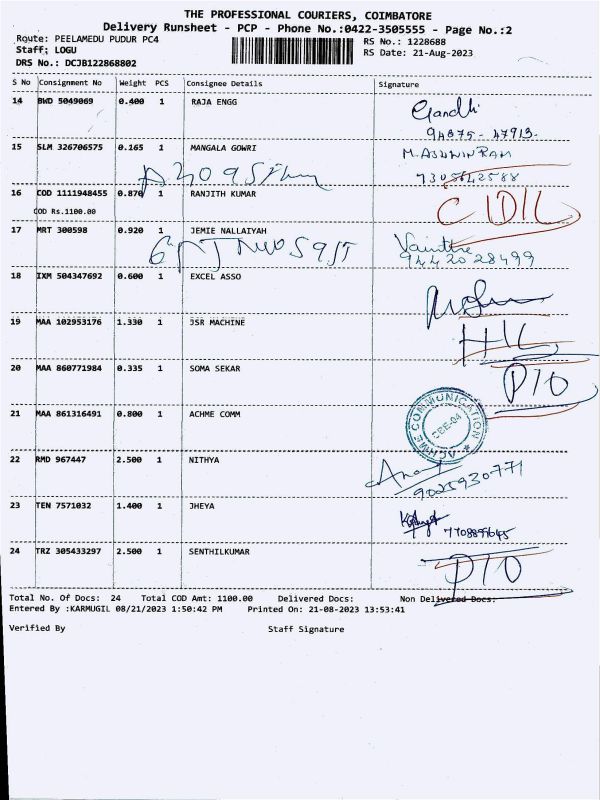 THE PROFESSIONAL COURIERS, COIMBATORE
Delivery Runsheet - PCP - Phone No.:0422-3505555 - Page No.:2
Route: PEELAMEDU PUDUR PC4 RS No.: 1228688
Staff: LOGU RS Date: 21-Aug-2023
DRS No.: DCJB122868802
S No Consignment No Weight PCS Consignee Details Signature
14 BWD 5049069 0.400 1 RAJA ENGG Gandhi
94875-47913.
15 SLM 326706575 0.165 1 MANGALA GOWRI M. ASHWIN RAM
7305642588
16 COD 1111948455 0.870 1 RANJITH KUMAR
COD Rs.1100.00
17 MRT 300598 0.920 1 JEMIE NALLAIYAH
9442028499
18 IXM 504347692 0.600 1 EXCEL ASSO
19 MAA 102953176 1.330 1 JSR MACHINE
20 MAA 860771984 0.335 1 SOMA SEKAR PTO
21 MAA 861316491 0.800 1 ACHME COMM ACHME COMMUNICATION CBE-04
22 RMD 967447 2.500 1 NITHYA
9025930771
23 TEN 7571032 1.400 1 JHEYA
7708899645
24 TRZ 305433297 2.500 1 SENTHILKUMAR PTO
Total No. Of Docs: 24 Total COD Amt: 1100.00 Delivered Docs: Non Delivered Docs:
Entered By :KARMUGIL 08/21/2023 1:50:42 PM Printed On: 21-08-2023 13:53:41
Verified By Staff Signature